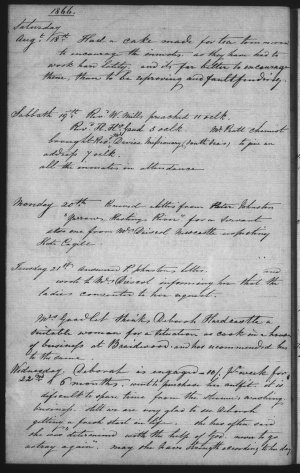 1866.
Saturday
Augt 18th Had a cake made for tea tomorrow
to encourage the inmates, as they have had to
work hard lately, and it is far better to encourage
them, than to be reproving and faultfinding.
Sabbath 19th Revd W. Mills preached 11 oclk
Revd R. 3 oclk Mr Kidd chemist
brought Revd Davies Missionary, (South Seas) to give an
address 7 oclk.
all the inmates in attendance
Monday 20th Received letter from Peter Johnston
River for a servant
also one from Mrs Driscol Newcastle respecting
Kate
Tuesday 21st Answered P. Johnstons letter. and
wrote to Mrs Driscol informing her that the
ladies consented to her request.
Mrs Goodlet thinks Deborah Hardcastle a
suitable woman for a situation as cook in a house
of business at Braidwood and has recommended her
to the same.
Wednesday Deborah is engaged 10/. pr week for
22nd 6 months, will purchase her outfit. it is
difficult to spare time from the sewing, washing
business. still we are very glad to see Deborah
getting a fresh start in life - she has often said
she was determined with the help of God, never to go
astray again. may she have strength according to her day